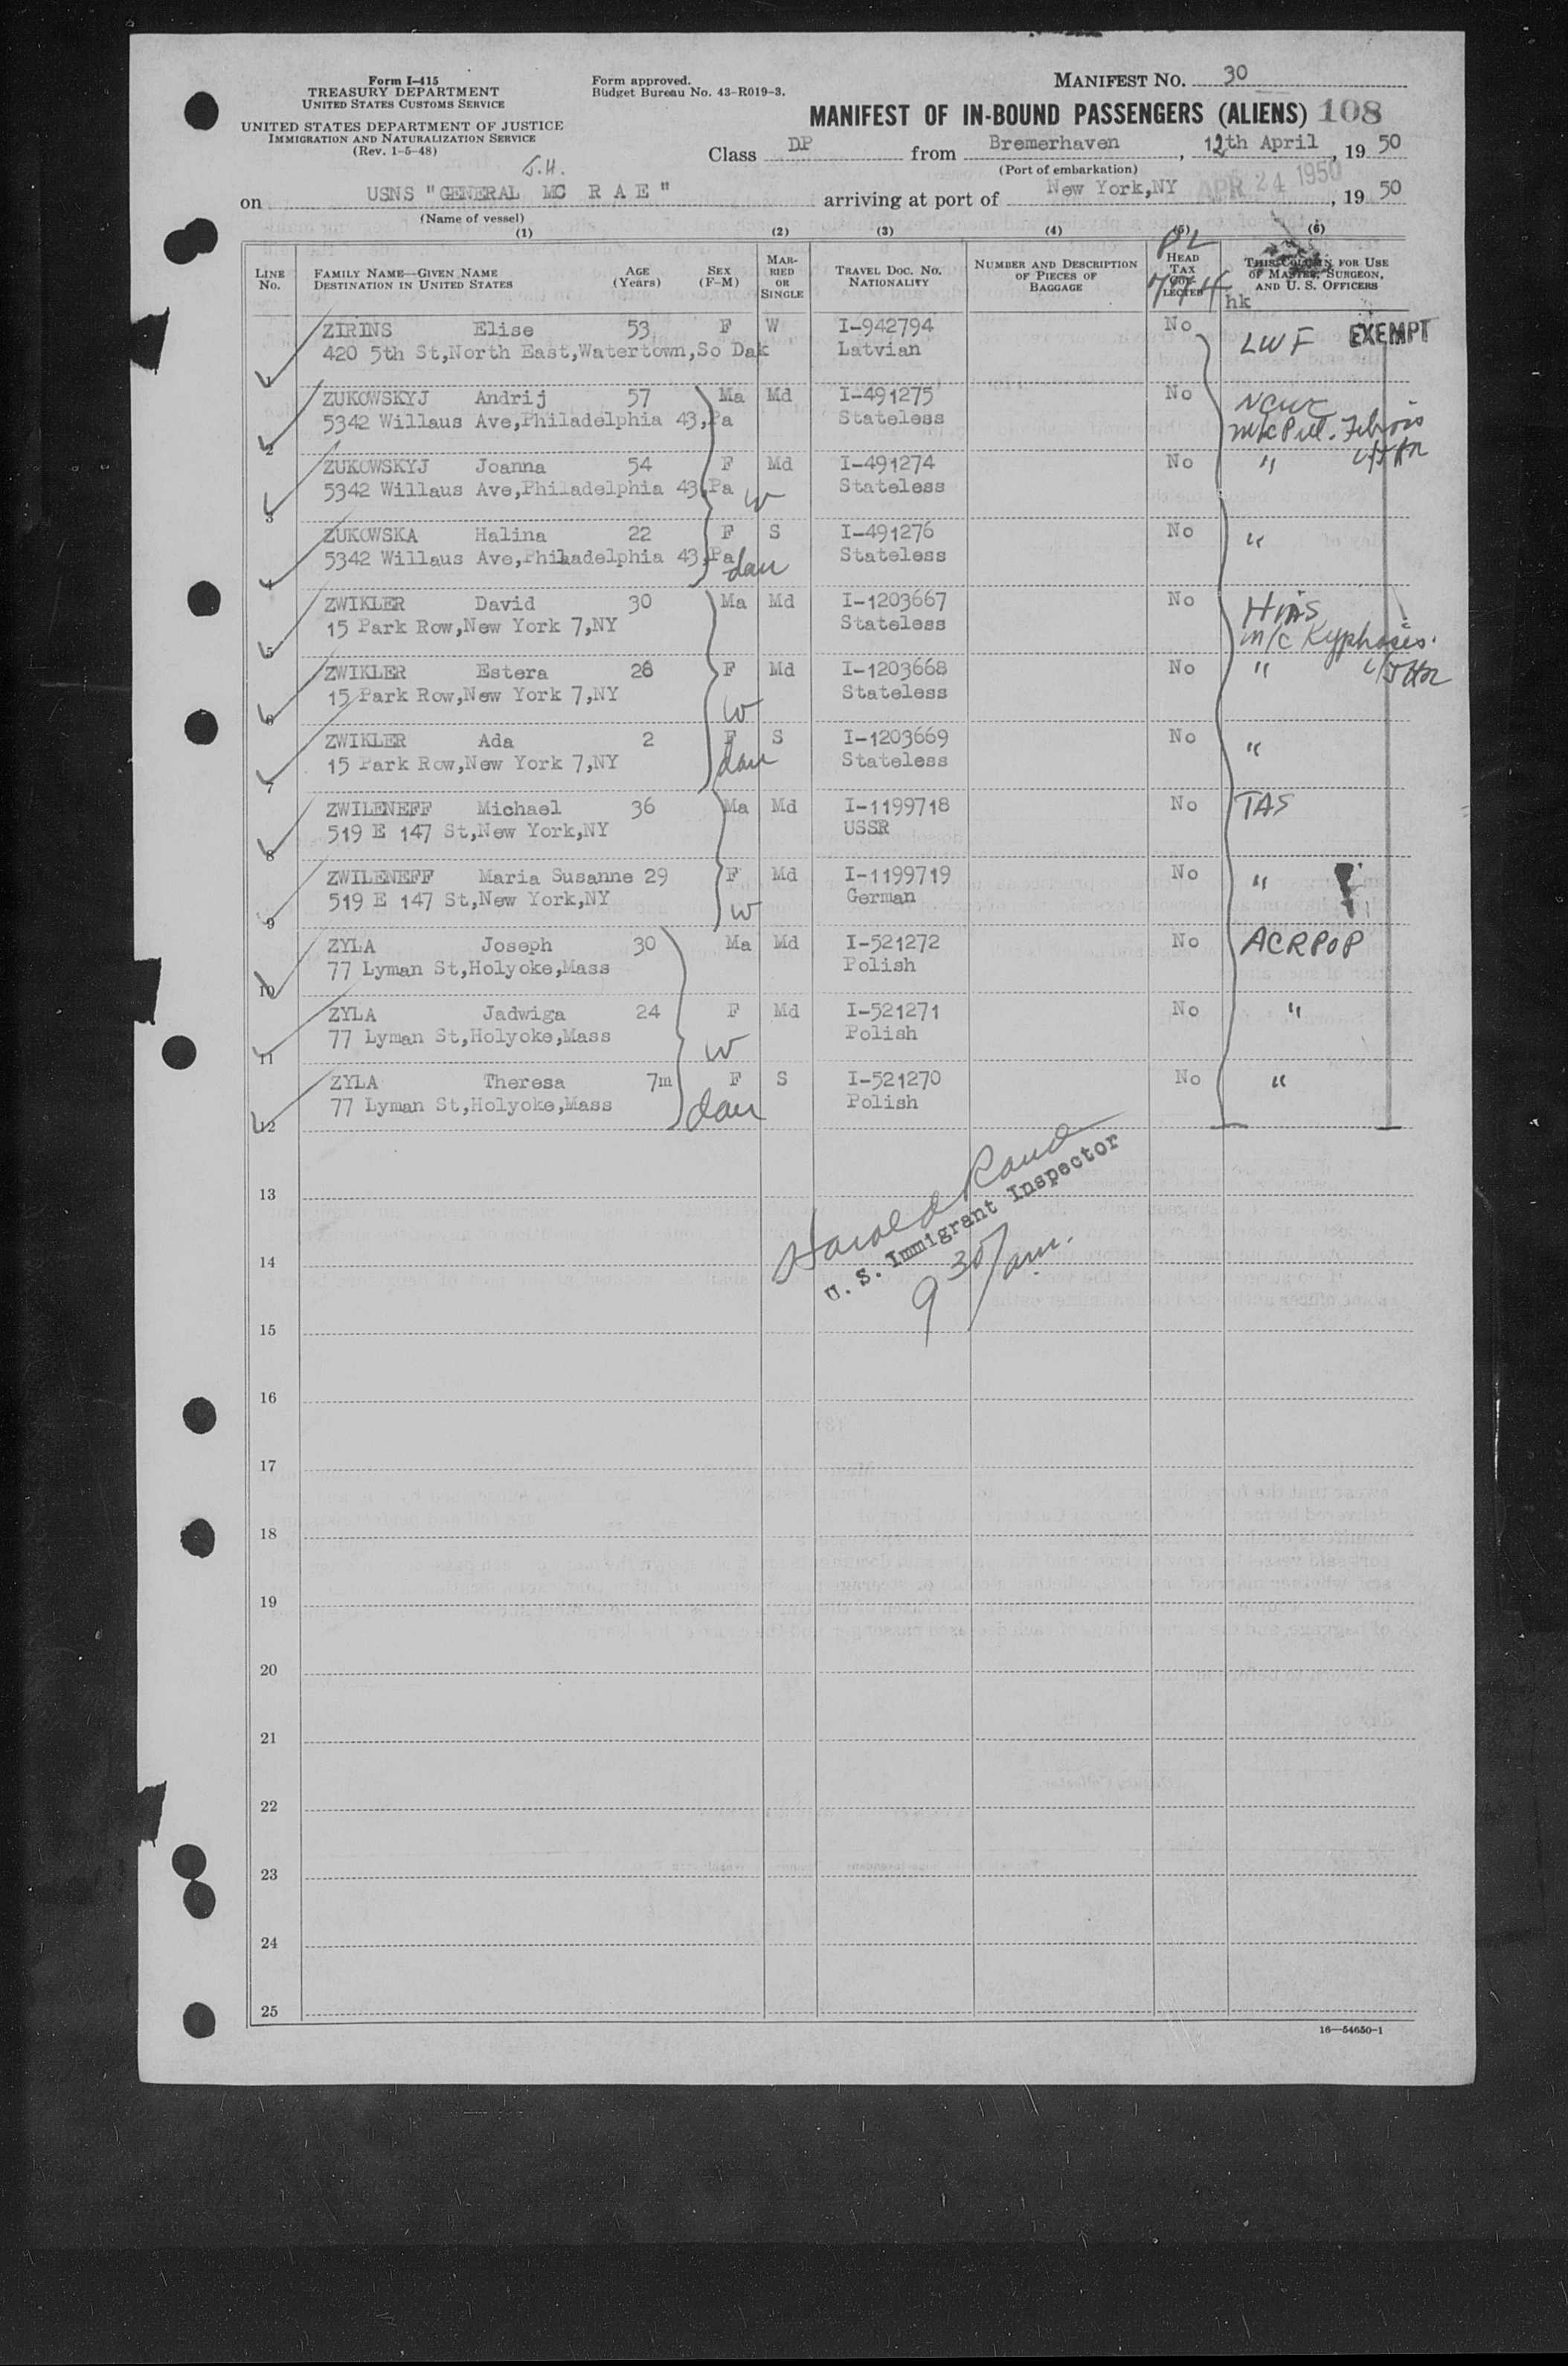 Form I-415
TREASURY DEPARTMENT
UNITED STATES CUSTOMS SERVICE
UNITED STATES DEPARTMENT OF JUSTICE
IMMIGRATION AND NATURALIZATION SERVICE
(Rev. 1-5-48)
Form approved.
Budget Bureau No. 43-R019-3.
MANIFEST NO. 30
MANIFEST OF IN-BOUND PASSENGERS (ALIENS) 108
Class DP from Bremerhaven, 12th April, 1950
(Port of embarkation)
J.H.
on USNS "GENERAL MC R A E" arriving at port of New York,NY APR 24 1950, 1950
(Name of vessel)
(1) (2) (3) (4) (5) (6)
PL 774
LINE No. FAMILY NAME—GIVEN NAME DESTINATION IN UNITED STATES AGE (Years) SEX (F-M) MARRIED OR SINGLE TRAVEL DOC. NO. NATIONALITY NUMBER AND DESCRIPTION OF PIECES OF BAGGAGE HEAD TAX COLLECTED THIS COLUMN FOR USE OF MASTER, SURGEON, AND U. S. OFFICERS
hk
1 ZIRINS Elise 53 F W I-942794 No LWF EXEMPT
420 5th St,North East,Watertown,So Dak Latvian
2 ZUKOWSKYJ Andrij 57 Ma Md I-491275 No NCWC
5342 Willaus Ave,Philadelphia 43,Pa Stateless m/c Pul. Fibrosis
3 ZUKOWSKYJ Joanna 54 F Md I-491274 No "
5342 Willaus Ave,Philadelphia 43,Pa w Stateless
4 ZUKOWSKA Halina 22 F S I-491276 No "
5342 Willaus Ave,Philaadelphia 43,Pa dau Stateless
5 ZWIKLER David 30 Ma Md I-1203667 No HIAS
15 Park Row,New York 7,NY Stateless m/c Kyphosis.
6 ZWIKLER Estera 28 F Md I-1203668 No "
15 Park Row,New York 7,NY w Stateless
7 ZWIKLER Ada 2 F S I-1203669 No "
15 Park Row,New York 7,NY dau Stateless
8 ZWILENEFF Michael 36 Ma Md I-1199718 No TAS
519 E 147 St,New York,NY USSR
9 ZWILENEFF Maria Susanne 29 F Md I-1199719 No "
519 E 147 St,New York,NY w German
10 ZYLA Joseph 30 Ma Md I-521272 No ACRPOP
77 Lyman St,Holyoke,Mass Polish
11 ZYLA Jadwiga 24 F Md I-521271 No "
77 Lyman St,Holyoke,Mass w Polish
12 ZYLA Theresa 7m F S I-521270 No "
77 Lyman St,Holyoke,Mass dau Polish
Harold Rand
U. S. Immigrant Inspector
9 30/am.
13
14
15
16
17
18
19
20
21
22
23
24
25
16—54650-1